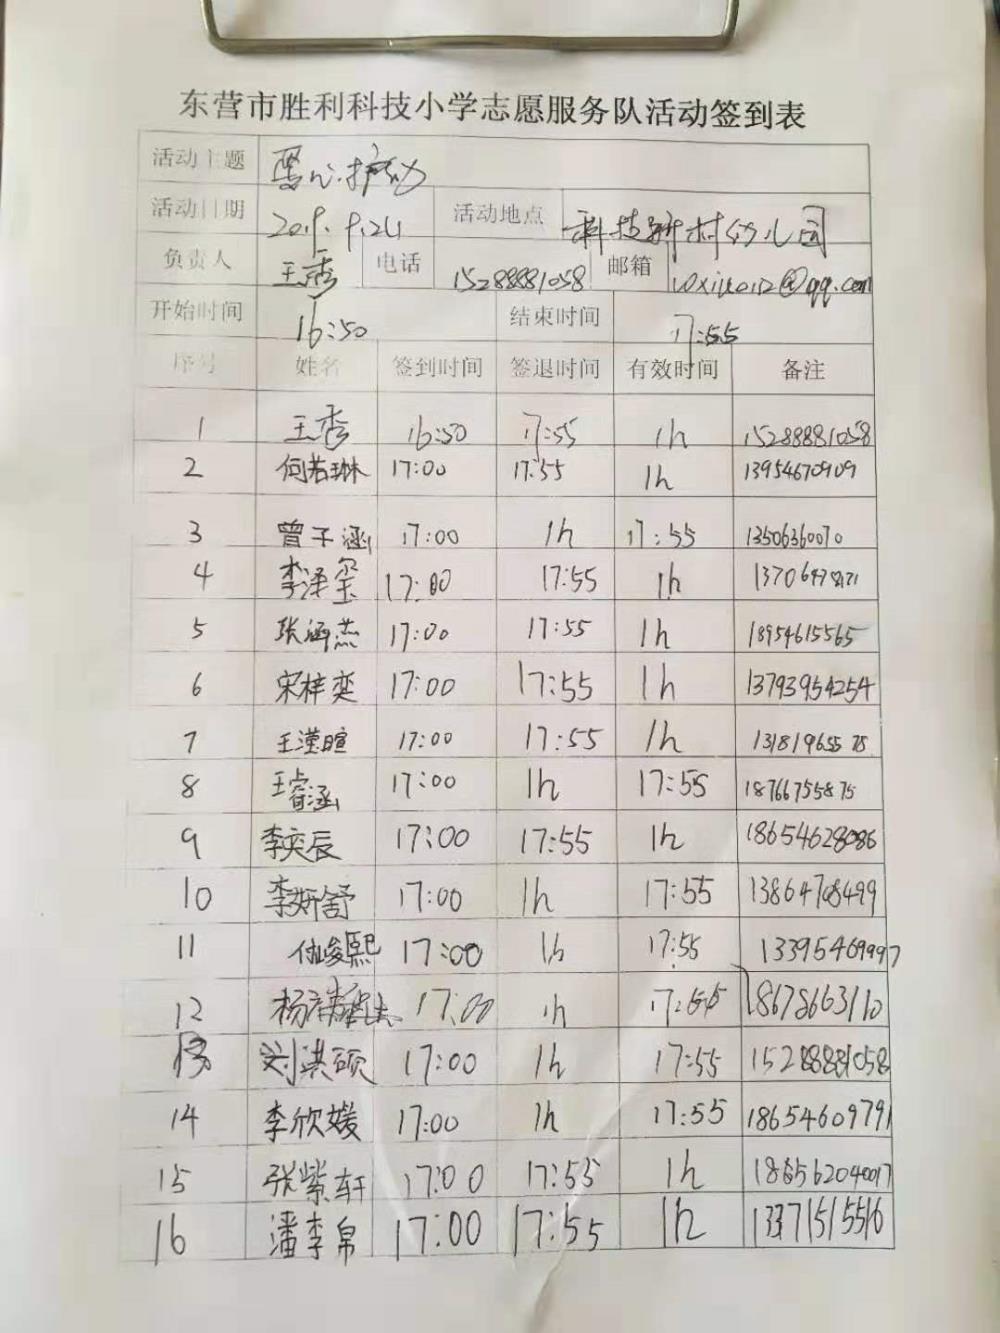 东营市胜利科技小学志愿服务队活动签到表
活动主题 爱心护幼
活动日期 2019.9.24 活动地点 科技新村幼儿园
负责人 王秀 电话 15288881058 邮箱
开始时间 16:50 结束时间 17:55
序号 姓名 签到时间 签退时间 有效时间 备注
1 王秀 16:50 17:55 1h 15288881058
2 何若琳 17:00 17:55 1h 13954670909
3 曾子涵 17:00 1h 17:55 13506360070
4 李泽玺 17:00 17:55 1h
5 张涵燕 17:00 17:55 1h 18954615565
6 宋梓奕 17:00 17:55 1h 13793954254
7 王滢暄 17:00 17:55 1h 13181965575
8 王睿涵 17:00 1h 17:55 18766755875
9 李奕辰 17:00 17:55 1h 18654628086
10 李妍舒 17:00 1h 17:55 13864708499
11 17:00 1h 17:55 13395469997
12 17:00 1h 17:55 18678663110
13 刘洪硕 17:00 1h 17:55 15288881058
14 李欣媛 17:00 1h 17:55 18654609791
15 张紫轩 17:00 17:55 1h 186562040017
16 潘李帛 17:00 17:55 1h 13371515516